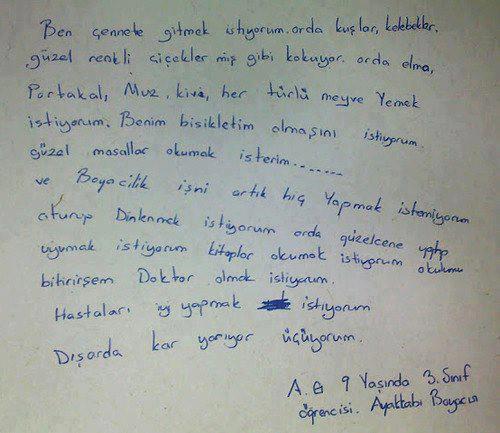 Ben cennete gitmek istiyorum. orda kuşlar, kelebekler,
güzel renkli çiçekler miş gibi kokuyor. orda elma,
Portakal, Muz, kivi, her türlü meyve Yemek
istiyorum. Benim bisikletim olmasını istiyorum.
güzel masallar okumak isterim.......
ve Boyacilik işni artık hiç Yapmak istemiyorum
oturup Dinlenmek istiyorum orda güzelcene yatıp
uyumak istiyorum kitaplar okumak istiyorum okulumu
bitirirsem Doktor olmak istiyorum.
Hastaları iyi yapmak istiyorum
Dışarda kar yarıyor üçüyorum.
A. G 9 Yaşında 3. Sınıf
öğrencisi. Ayakkabı Boyacısı